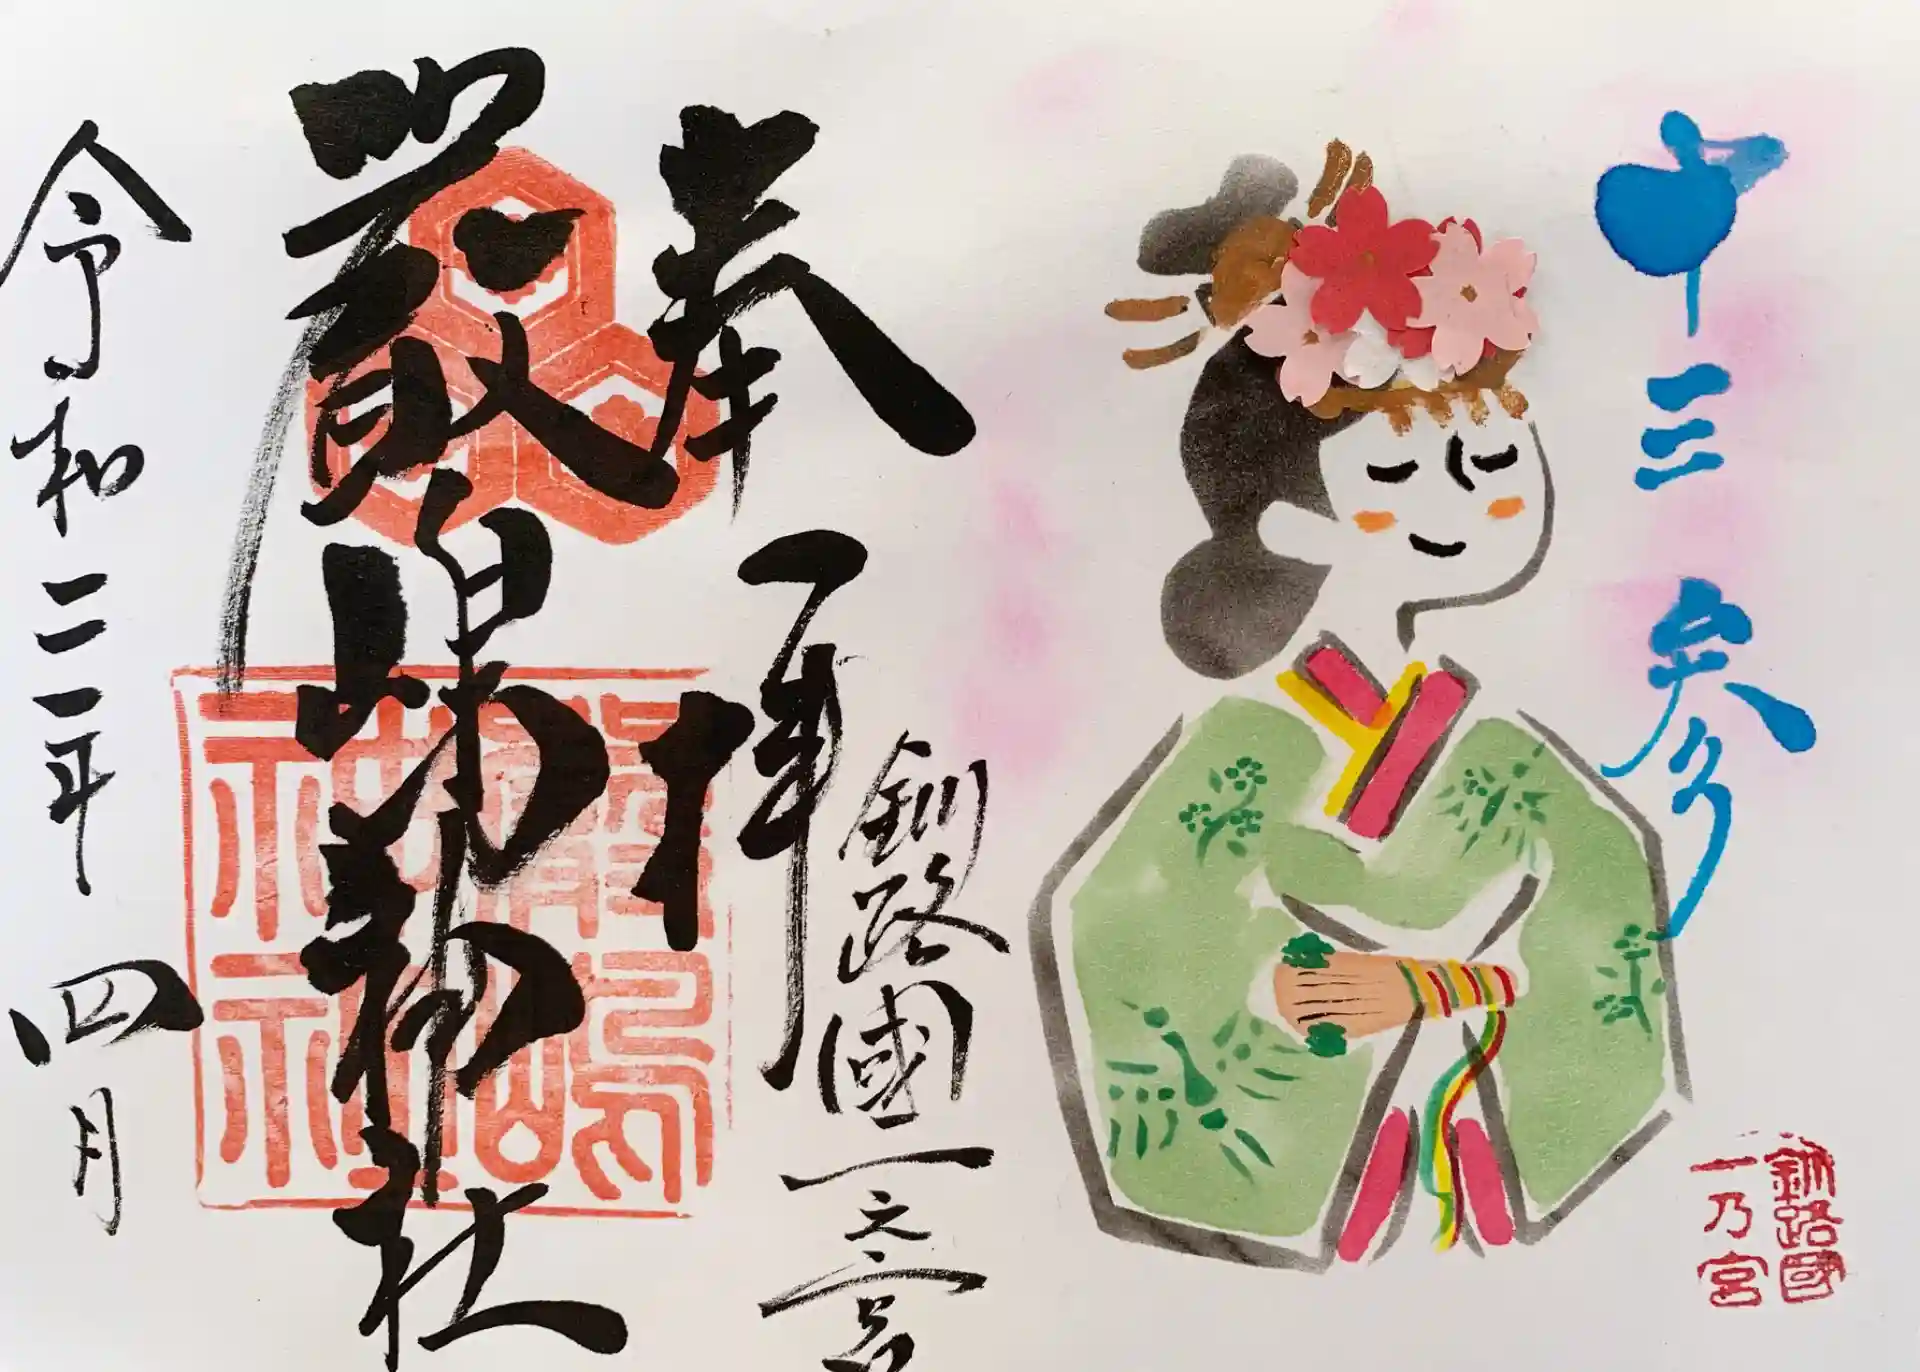 十三参り
釧路國
一乃宮
奉拝
釧路國一之宮
嚴嶋神社
令和二年 四月